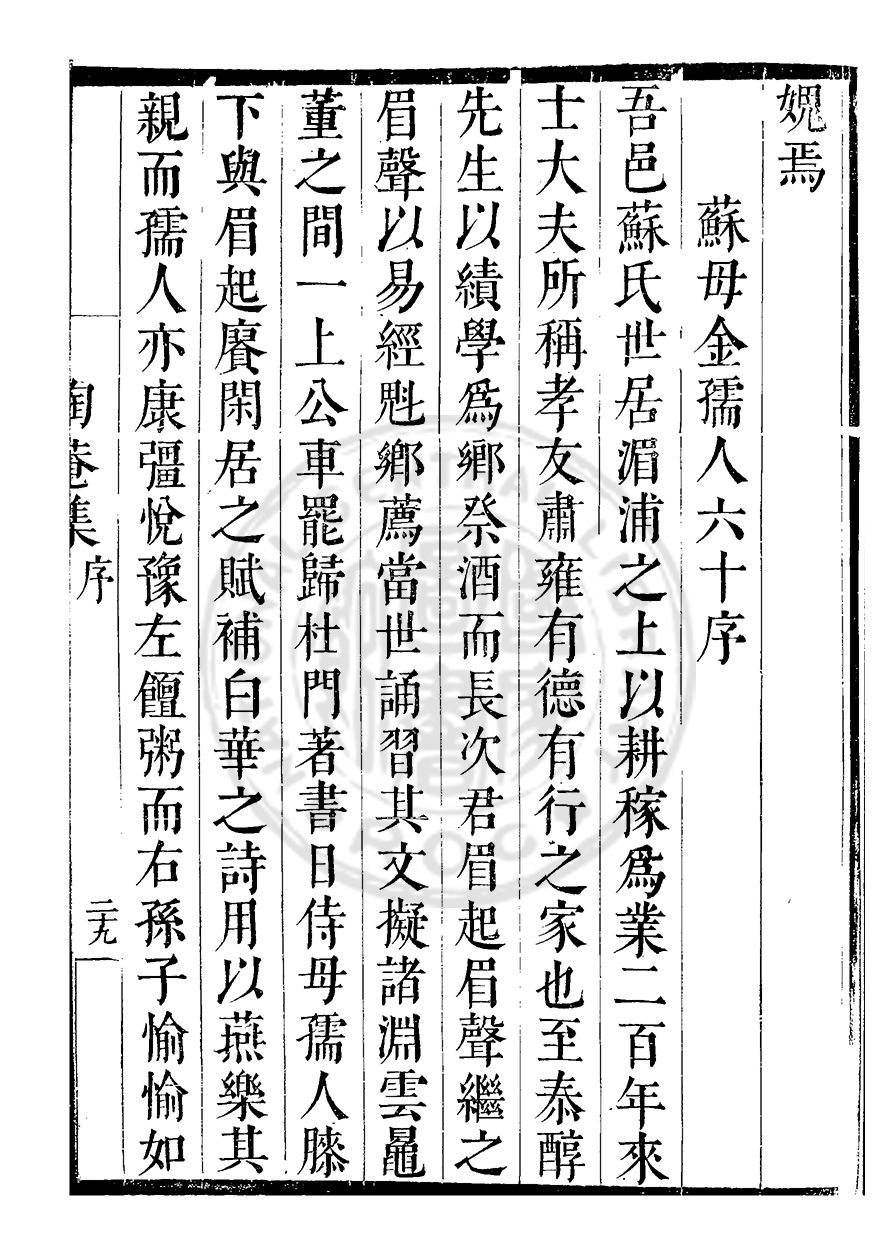 媿焉
蘇母金孺人六十序
吾邑蘇氏世居湄浦之上以耕稼爲業二百年來
士大夫所稱孝友肅雍有德有行之家也至泰醇
先生以績學爲鄉祭酒而長次君眉起眉聲繼之
眉聲以易經魁鄉薦當世誦習其文擬諸淵雲鼂
董之間一上公車罷歸杜門著書日侍母孺人膝
下與眉起賡閑居之賦補白華之詩用以燕樂其
親而孺人亦康彊悅豫左饘粥而右孫子愉愉如
陶菴集 序 二十九